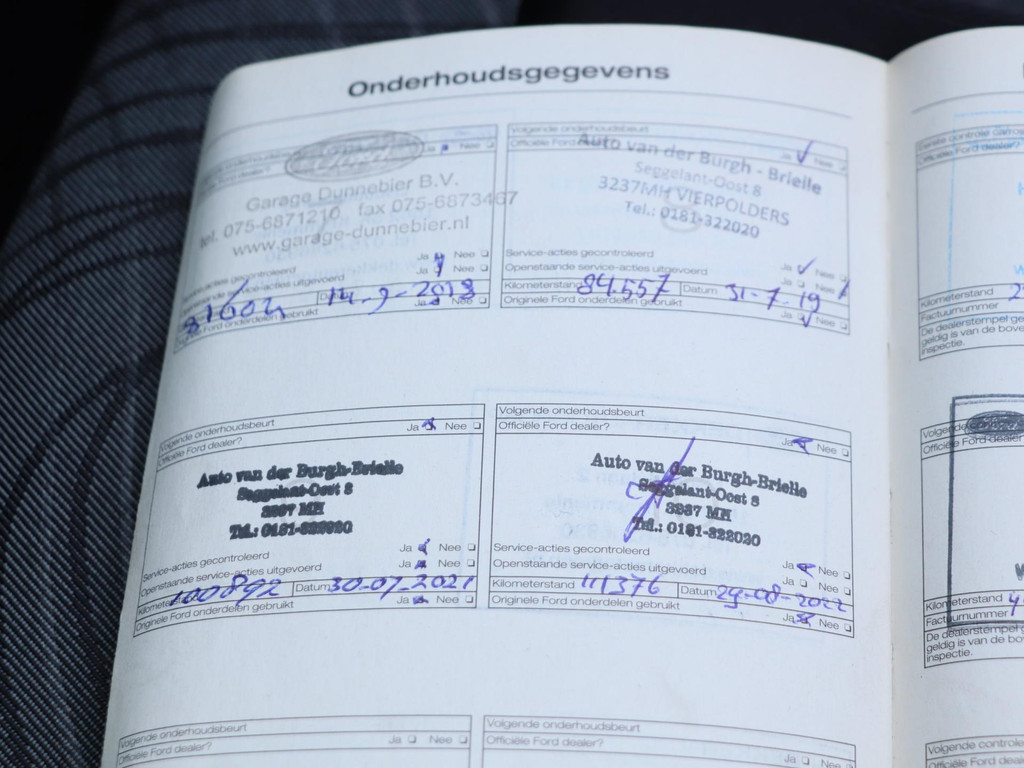 Onderhoudsgegevens
Garage Dunnebier B.V.
tel. 075-6871210 fax 075-6873467
www.garage-dunnebier.nl
Ja Nee
Ja Nee
Service-acties gecontroleerd
Openstaande service-acties uitgevoerd
14-9-2018
Originele Ford onderdelen gebruikt Ja Nee
Volgende onderhoudsbeurt
Officiële Ford dealer? Ja Nee
Auto van der Burgh - Brielle
Seggelant-Oost 8
3237MH VIERPOLDERS
Tel.: 0181-322020
Service-acties gecontroleerd Ja Nee
Openstaande service-acties uitgevoerd Ja Nee
Kilometerstand 84.557 Datum 31-7-19
Originele Ford onderdelen gebruikt Ja Nee
Volgende onderhoudsbeurt
Officiële Ford dealer? Ja Nee
Auto van der Burgh-Brielle
Seggelant-Oost 8
3237 MH
Tel.: 0181-322020
Service-acties gecontroleerd Ja Nee
Openstaande service-acties uitgevoerd Ja Nee
Kilometerstand 100892 Datum 30-07-2021
Originele Ford onderdelen gebruikt Ja Nee
Volgende onderhoudsbeurt
Officiële Ford dealer? Ja Nee
Auto van der Burgh-Brielle
Seggelant-Oost 8
3237 MH
Tel.: 0181-322020
Service-acties gecontroleerd Ja Nee
Openstaande service-acties uitgevoerd Ja Nee
Kilometerstand 111376 Datum 29-08-2022
Originele Ford onderdelen gebruikt Ja Nee
Volgende onderhoudsbeurt
Officiële Ford dealer? Ja Nee
Volgende onderhoudsbeurt
Officiële Ford dealer? Ja Nee
Officiële Ford dealer?
Kilometerstand
Factuurnummer
De dealerstempel
geldig is van de
inspectie.
Officiële Ford dealer
Kilometerstand
Factuurnummer
De dealerstempel
geldig is van de
inspectie.
Volgende controle
Officiële Ford